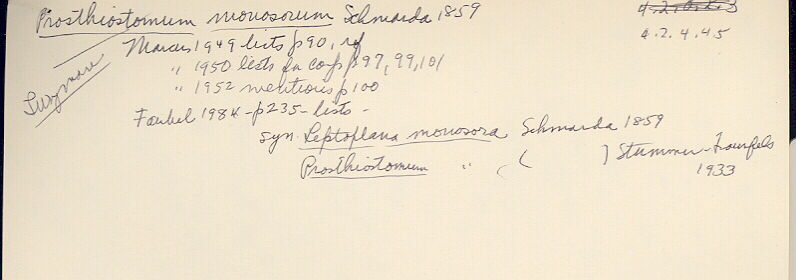 Prosthiostomum monosorum Schmarda 1859
4.2.4.4.5
Marcus 1949 lists p90, ref
" 1950 lists in comp p97, 99, 101
" 1952 mentions p100
Faubel 1984 - p235 - lists -
syn. Leptoplana monosora Schmarda 1859
Prosthiostomum " ( ) Stummer-Traunfels
1933